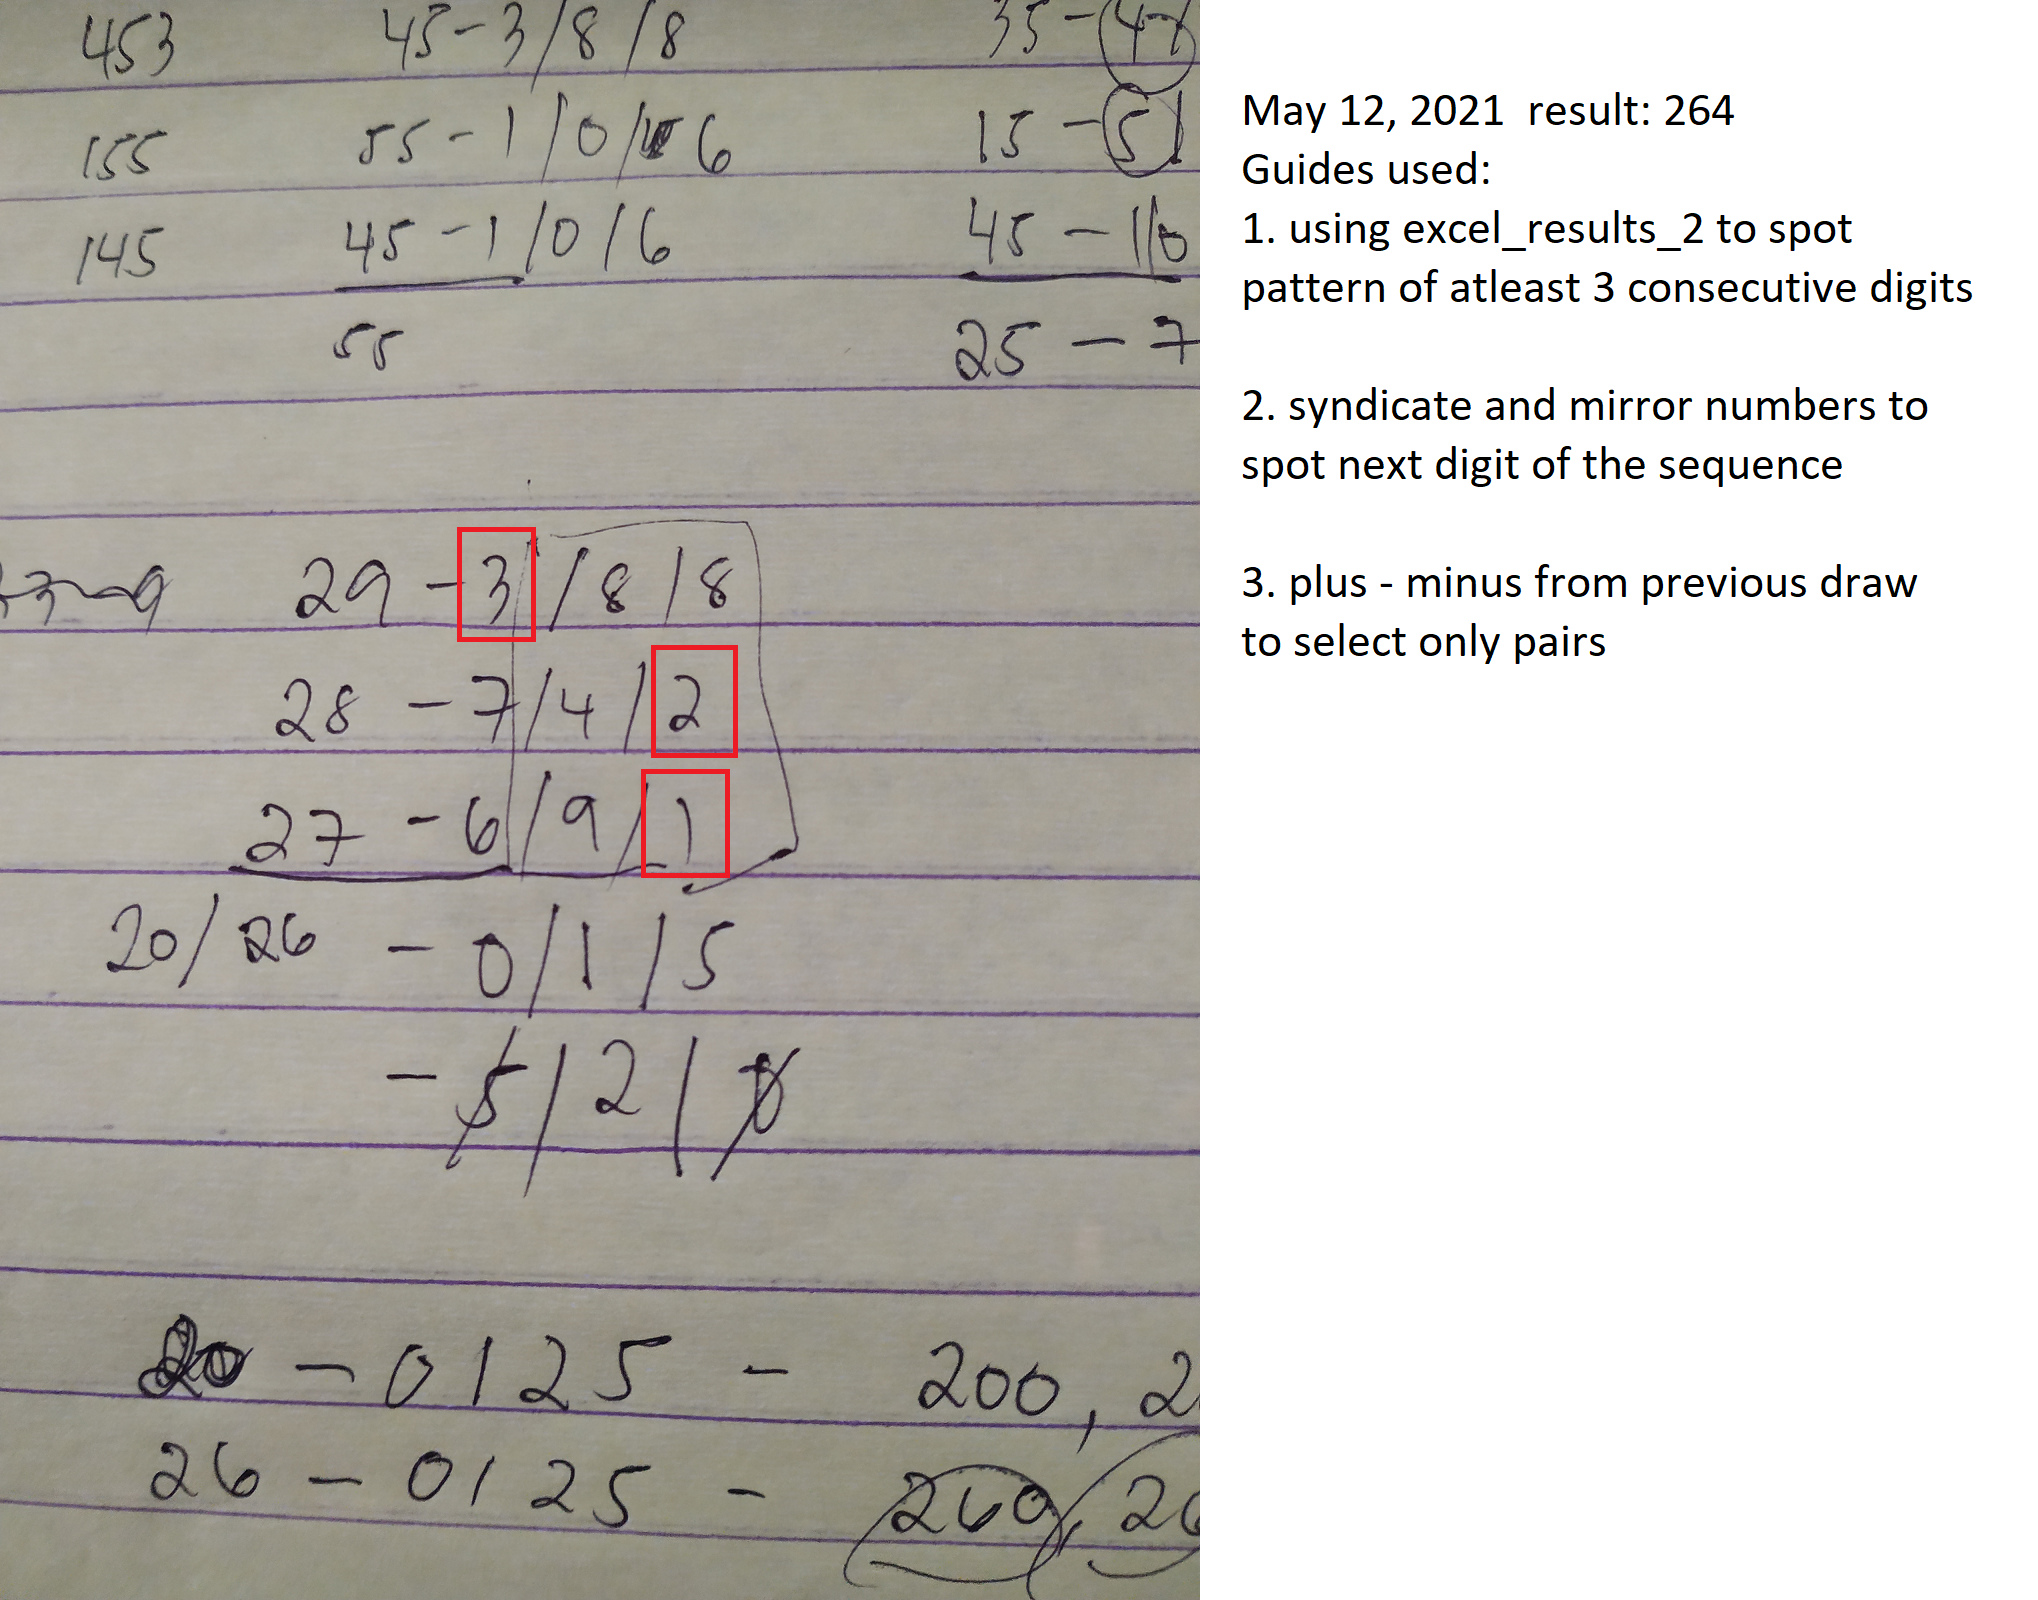 453 45-3/8/8 35-47
155 55-1/0/6 15-51
145 45-1/0/6 45-1/0
55 25-7
29-3/8/8
28-7/4/2
27-6/9/1
20/26 - 0/1/5
- 5/2/0
20 - 0125 - 200, 2
26 - 0125 - 260, 26
May 12, 2021 result: 264
Guides used:
1. using excel_results_2 to spot
pattern of atleast 3 consecutive digits
2. syndicate and mirror numbers to
spot next digit of the sequence
3. plus - minus from previous draw
to select only pairs